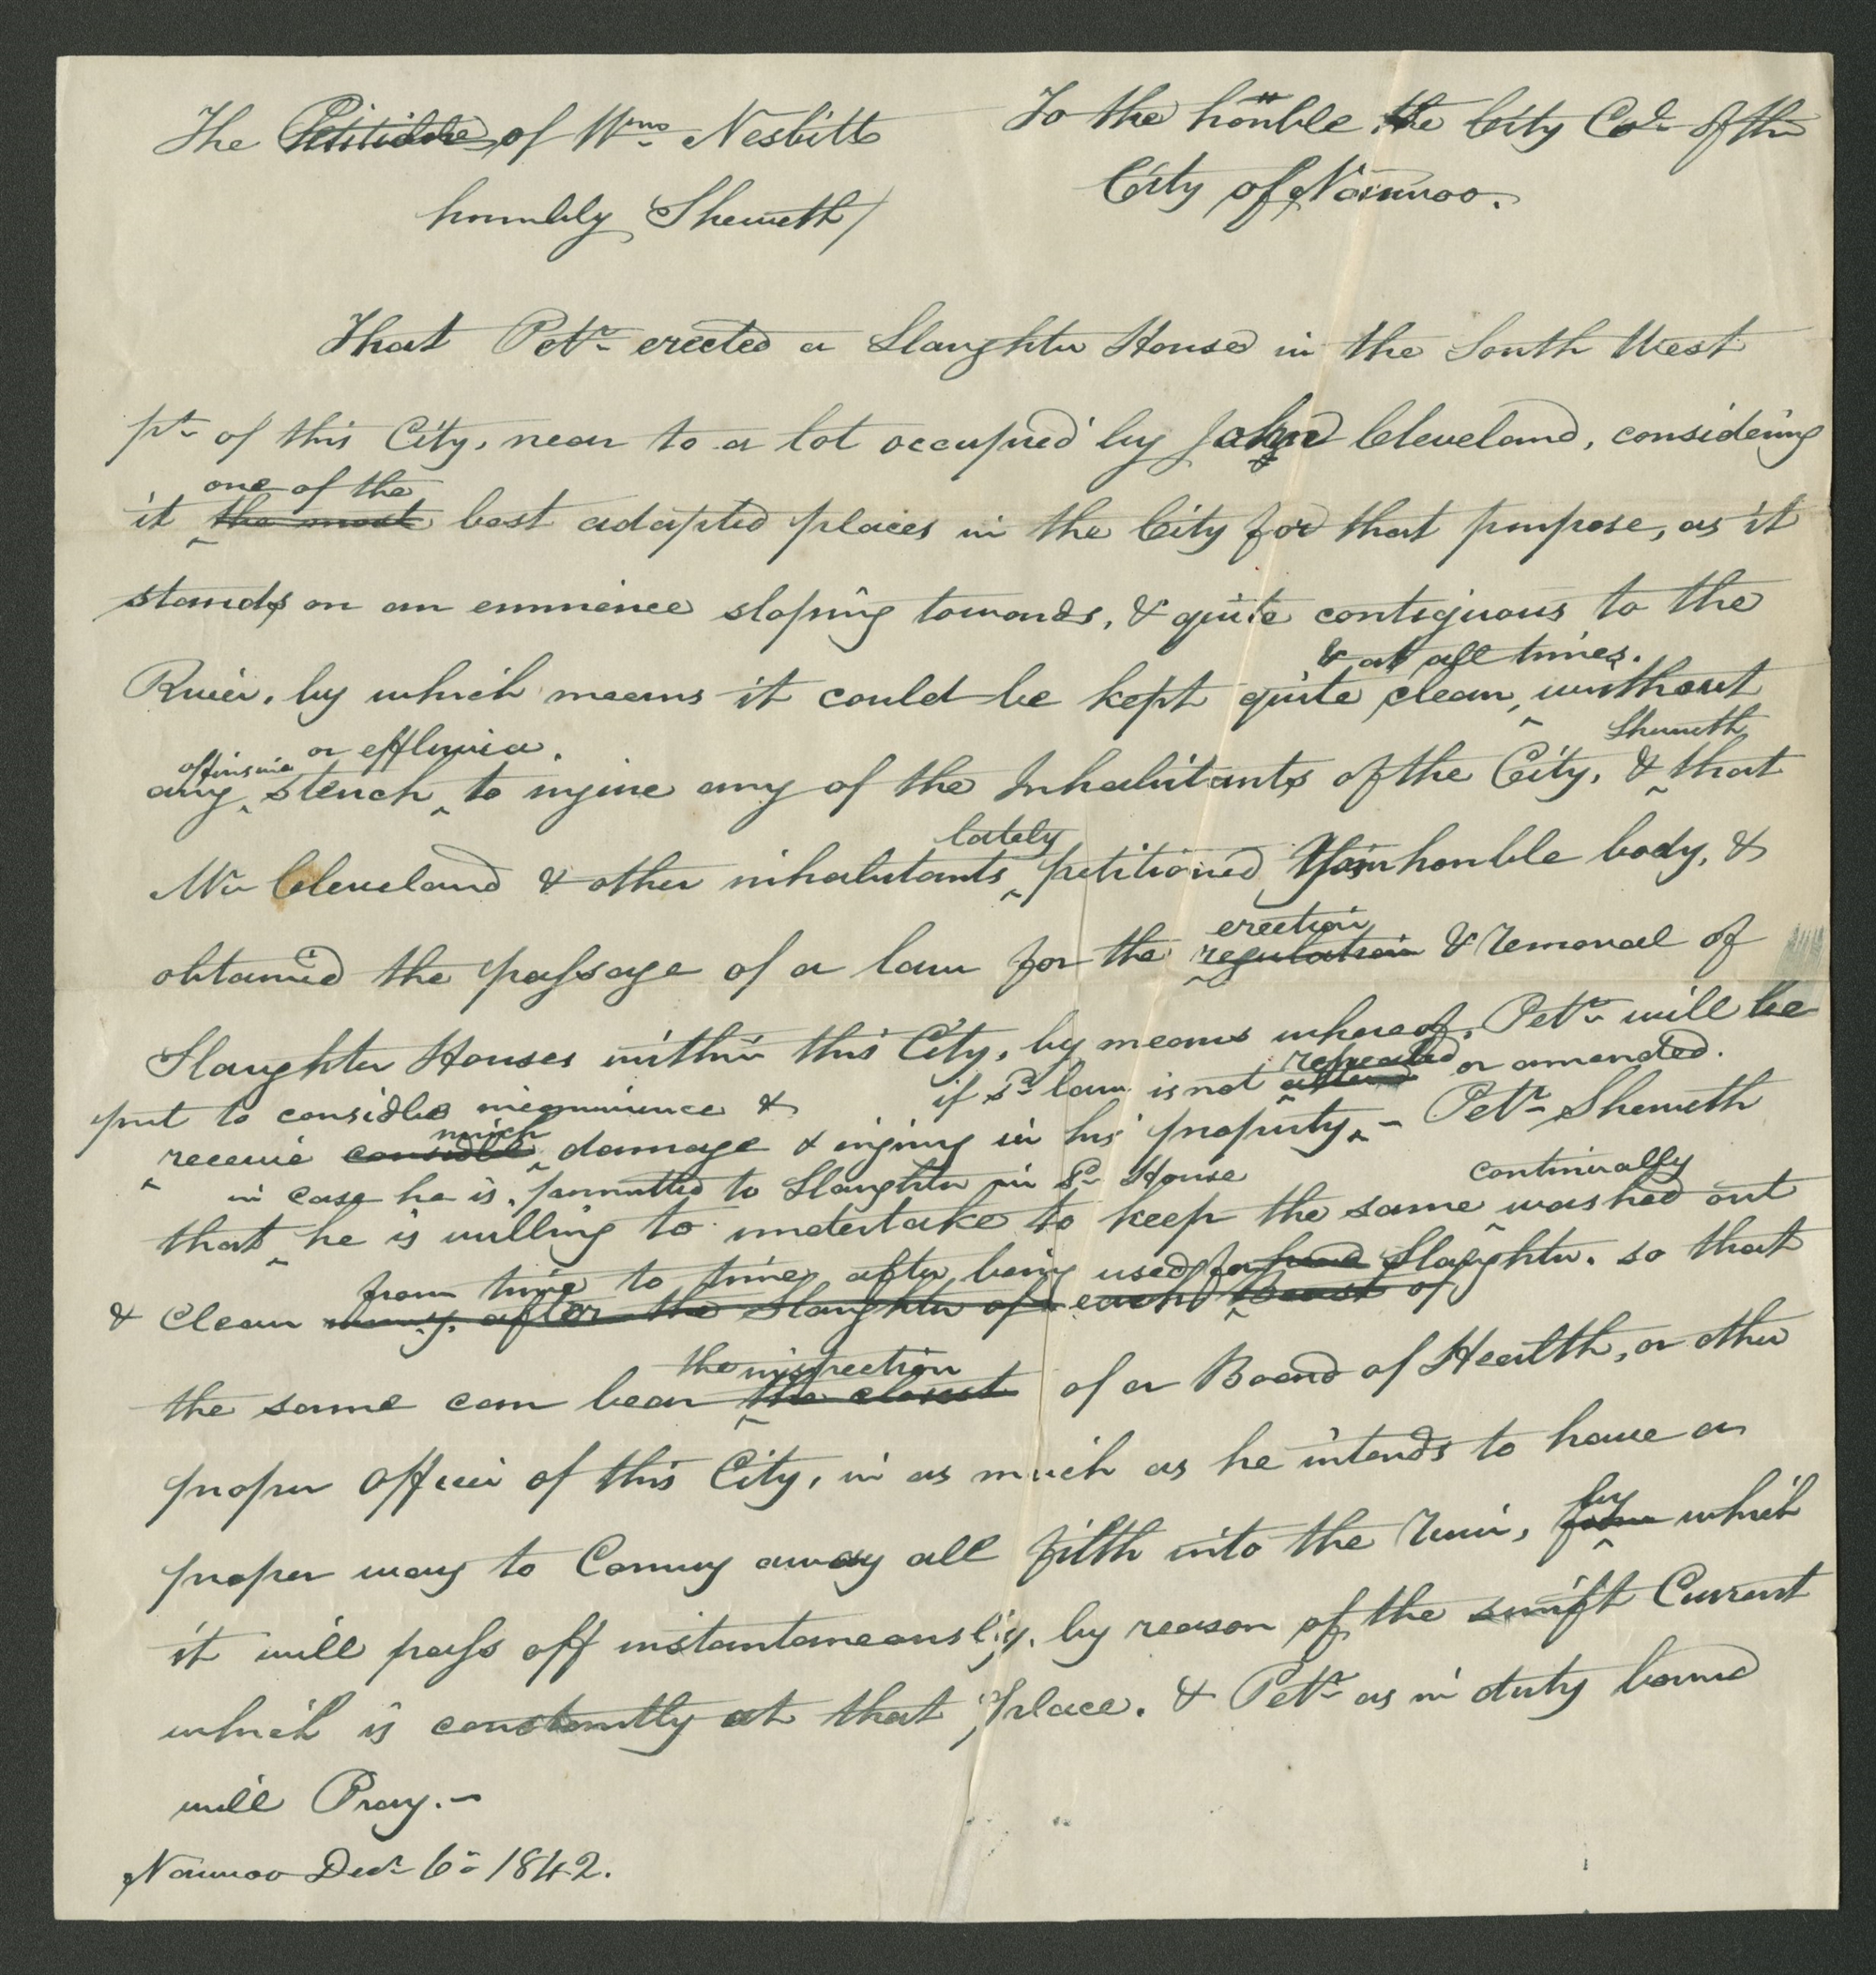 To the honble the City Col. of the
City of Nauvoo.
The Petition of Wm. Nesbitt
humbly Sheweth/
That Petr. erected a Slaughter House in the South West
pt. of this City, near to a lot occupied by John Cleveland, considering
one of the
it the most best adapted places in the City for that purpose, as it
stands on an eminence sloping towards, & quite contiguous to the
& at all times.
River, by which means it could be kept quite clean, without
offensive or effluvia. Sheweth
any stench to injure any of the Inhabitants of the City, & that
lately
Mr. Cleveland & other inhabitants petitioned Your honble body, &
erection
obtained the passage of a law for the regulation & removal of
Slaughter Houses within this City, by means whereof, Petr. will be
put to considble inconvenience & if sd. law is not altered repealed or amended.
much
receive considble damage & injury in his property. - Petr. Sheweth
in case he is permitted to Slaughter in sd. House continually
that he is willing to undertake to keep the same washed out
from time to time after being used for Slaughter. so that
& clean away, after the Slaughter of each Beast of
the inspection
the same can bear the closest of a Board of Health, or other
proper officer of this City, in as much as he intends to have a
by
proper way to Convey away all filth into the River, from which
it will pass off instantaneously, by reason of the swift Current
which is constantly at that place. & Petr. as in duty bound
will Pray.-
Nauvoo Decr. 6. 1842.